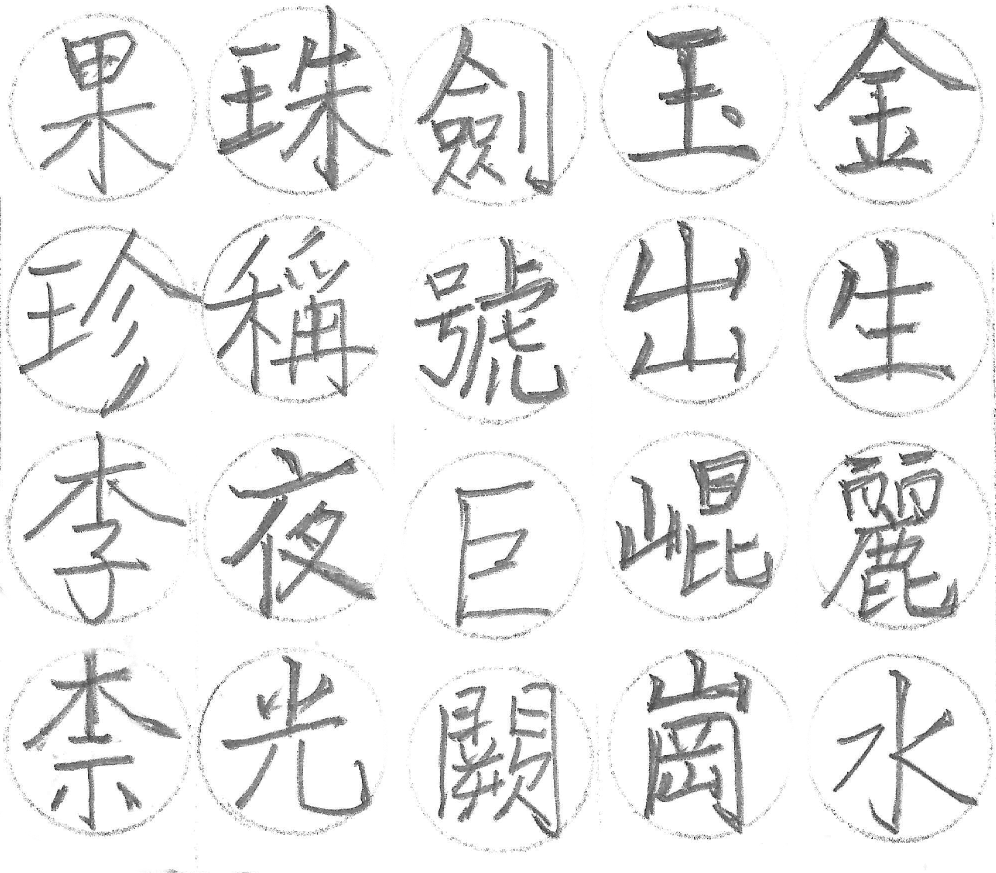 金生麗水
玉出崐崗
劍號巨闕
珠稱夜光
果珍李柰